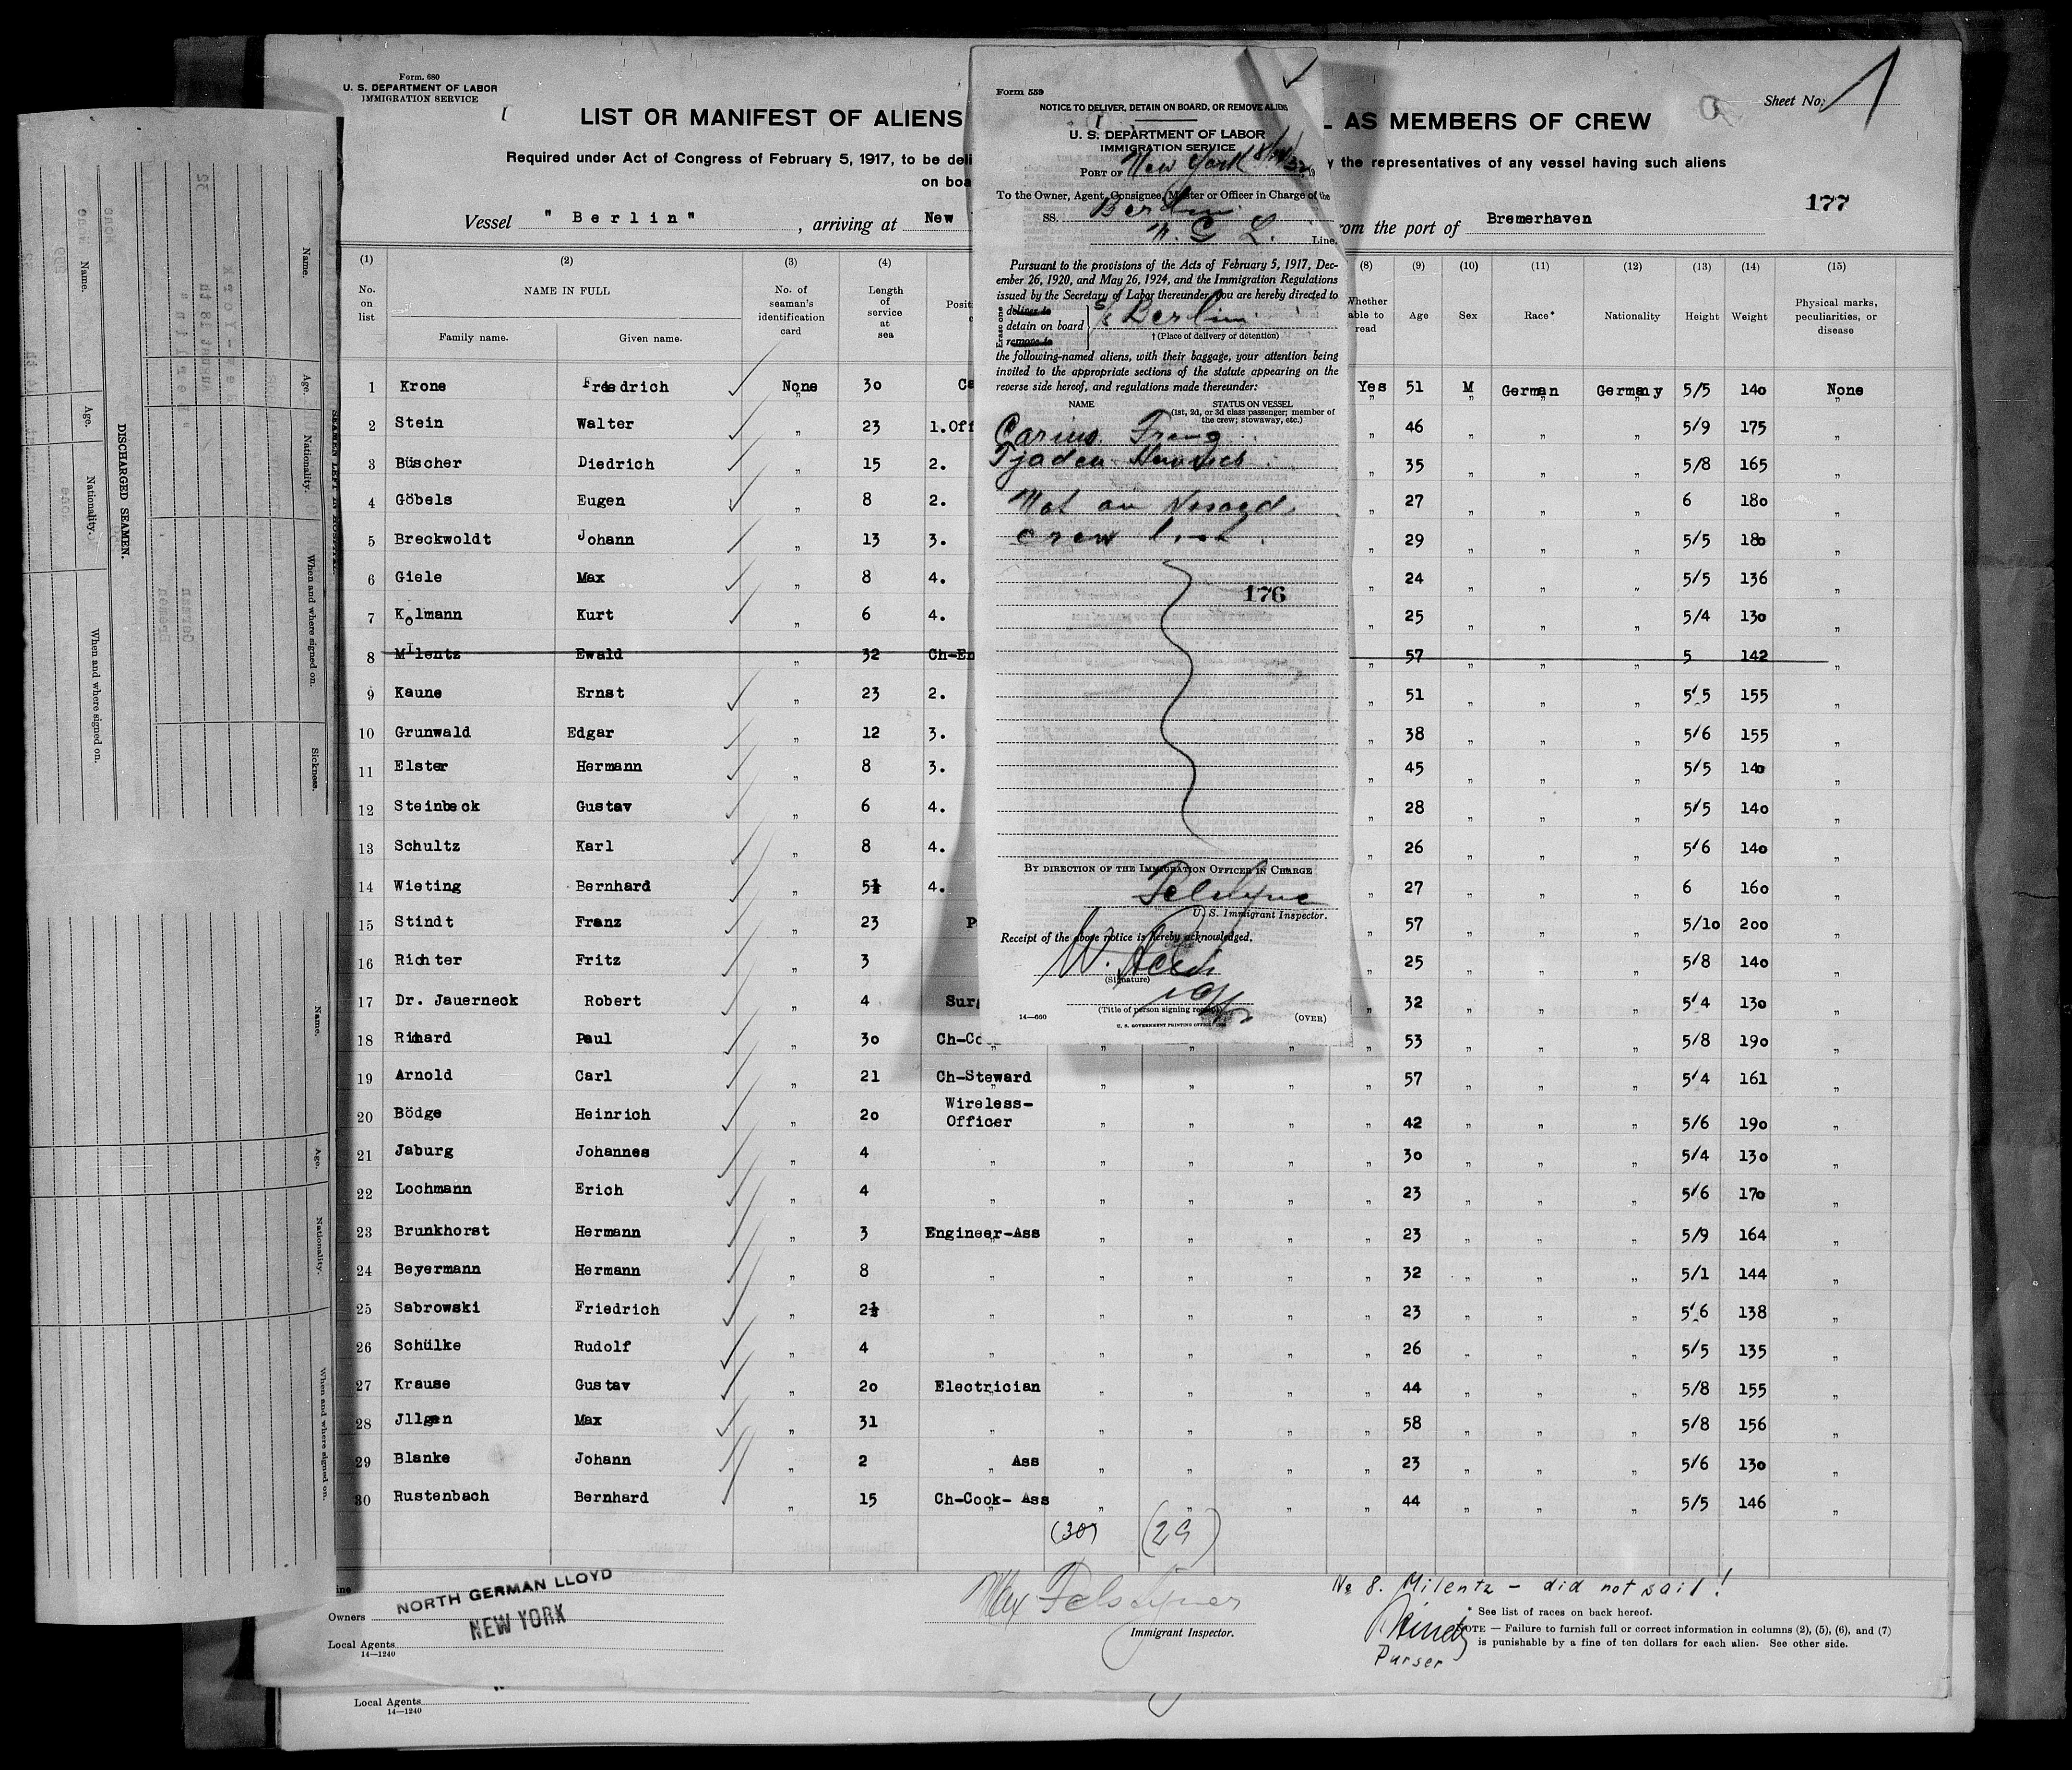 Form. 680
U. S. DEPARTMENT OF LABOR
IMMIGRATION SERVICE
LIST OR MANIFEST OF ALIENS
AS MEMBERS OF CREW
Sheet No. 1
Required under Act of Congress of February 5, 1917, to be deli
the representatives of any vessel having such aliens
on boa
177
Vessel " Berlin ", arriving at New
from the port of Bremerhaven
(1) (2) (3) (4) (8) (9) (10) (11) (12) (13) (14) (15)
No. on list
NAME IN FULL
Family name. Given name.
No. of seaman's identification card
Length of service at sea
Posit
Whether able to read
Age Sex Race* Nationality Height Weight
Physical marks, peculiarities, or disease
1 Krone Friedrich None 30 Ca Yes 51 M German Germany 5/5 140 None
2 Stein Walter " 23 1.Off " 46 " " " 5/9 175 "
3 Büscher Diedrich " 15 2. " 35 " " " 5/8 165 "
4 Göbels Eugen " 8 2. " 27 " " " 6 180 "
5 Breckwoldt Johann " 13 3. " 29 " " " 5/5 180 "
6 Giele Max " 8 4. " 24 " " " 5/5 136 "
7 Kolmann Kurt " 6 4. " 25 " " " 5/4 130 "
8 MIlentz Ewald " 32 Ch-En " 57 " " " 5 142 "
9 Kaune Ernst " 23 2. " 51 " " " 5/5 155 "
10 Grunwald Edgar " 12 3. " 38 " " " 5/6 155 "
11 Elster Hermann " 8 3. " 45 " " " 5/5 140 "
12 Steinbeck Gustav " 6 4. " 28 " " " 5/5 140 "
13 Schultz Karl " 8 4. " 26 " " " 5/6 140 "
14 Wieting Bernhard " 5½ 4. " 27 " " " 6 160 "
15 Stindt Franz " 23 P " 57 " " " 5/10 200 "
16 Richter Fritz " 3 " 25 " " " 5/8 140 "
17 Dr. Jauerneck Robert " 4 Surg " 32 " " " 5/4 130 "
18 Richard Paul " 30 Ch-Co " " " " 53 " " " 5/8 190 "
19 Arnold Carl " 21 Ch-Steward " " " " 57 " " " 5/4 161 "
20 Bödge Heinrich " 20 Wireless-Officer " " " " 42 " " " 5/6 190 "
21 Jaburg Johannes " 4 " " " " " 30 " " " 5/4 130 "
22 Lochmann Erich " 4 " " " " " 23 " " " 5/6 170 "
23 Brunkhorst Hermann " 3 Engineer-Ass " " " " 23 " " " 5/9 164 "
24 Beyermann Hermann " 8 " " " " " 32 " " " 5/1 144 "
25 Sabrowski Friedrich " 2½ " " " " " 23 " " " 5/6 138 "
26 Schülke Rudolf " 4 " " " " " 26 " " " 5/5 135 "
27 Krause Gustav " 20 Electrician " " " " 44 " " " 5/8 155 "
28 Jllgen Max " 31 " " " " " 58 " " " 5/8 156 "
29 Blanke Johann " 2 " Ass " " " " 23 " " " 5/6 130 "
30 Rustenbach Bernhard " 15 Ch-Cook- Ass " " " " 44 " " " 5/5 146 "
(30) (29)
Line
Owners
NORTH GERMAN LLOYD
NEW YORK
Local Agents
14—1240
Immigrant Inspector.
No 8. Milentz - did not sail!
* See list of races on back hereof.
NOTE — Failure to furnish full or correct information in columns (2), (5), (6), and (7)
is punishable by a fine of ten dollars for each alien. See other side.
Purser
Local Agents
14—1240
Form 559
NOTICE TO DELIVER, DETAIN ON BOARD, OR REMOVE ALIENS
U. S. DEPARTMENT OF LABOR
IMMIGRATION SERVICE
PORT OF New York
To the Owner, Agent, Consignee, Master or Officer in Charge of the
SS. Berlin
N. G. L. Line.
Pursuant to the provisions of the Acts of February 5, 1917, Dec-
ember 26, 1920, and May 26, 1924, and the Immigration Regulations
issued by the Secretary of Labor thereunder, you are hereby directed to
Erase one
deliver to
detain on board
remove to
S/S Berlin
† (Place of delivery or detention)
the following-named aliens, with their baggage, your attention being
invited to the appropriate sections of the statute appearing on the
reverse side hereof, and regulations made thereunder:
NAME STATUS ON VESSEL
(1st, 2d, or 3d class passenger; member of
the crew; stowaway, etc.)
Carius Franz
Tjaden Hinrich
Not on Visaed
crew list
176
BY DIRECTION OF THE IMMIGRATION OFFICER IN CHARGE
U. S. Immigrant Inspector.
Receipt of the above notice is hereby acknowledged.
(Signature)
(Title of person signing receipt)
14—660
U. S. GOVERNMENT PRINTING OFFICE
(OVER)
DISCHARGED SEAMEN.
Name. Age. Nationality. When and where signed on.
Name. Age. Nationality. When and where signed on. Sickness.
Name. Age. Nationality. When and where signed on.